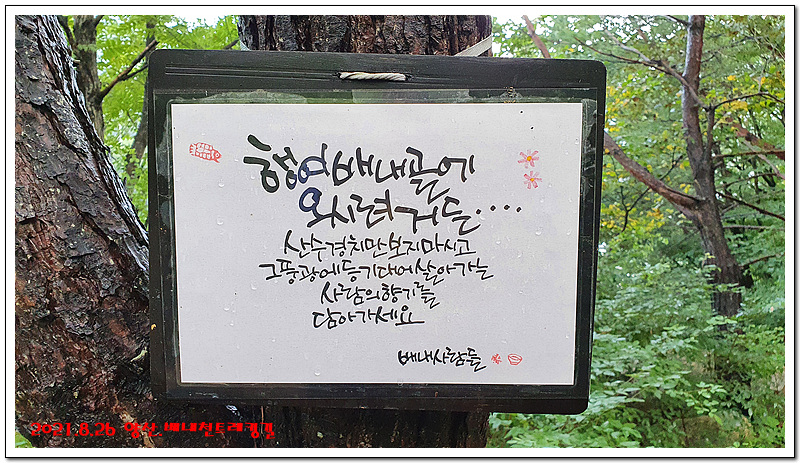 행여 배내골에
오시려거든....
산수경치만 보지 마시고
그 풍광에 등기대어 살아가는
사람의 향기를
담아가세요
배내사람들
2021.8.26 양산 배내천트레킹길